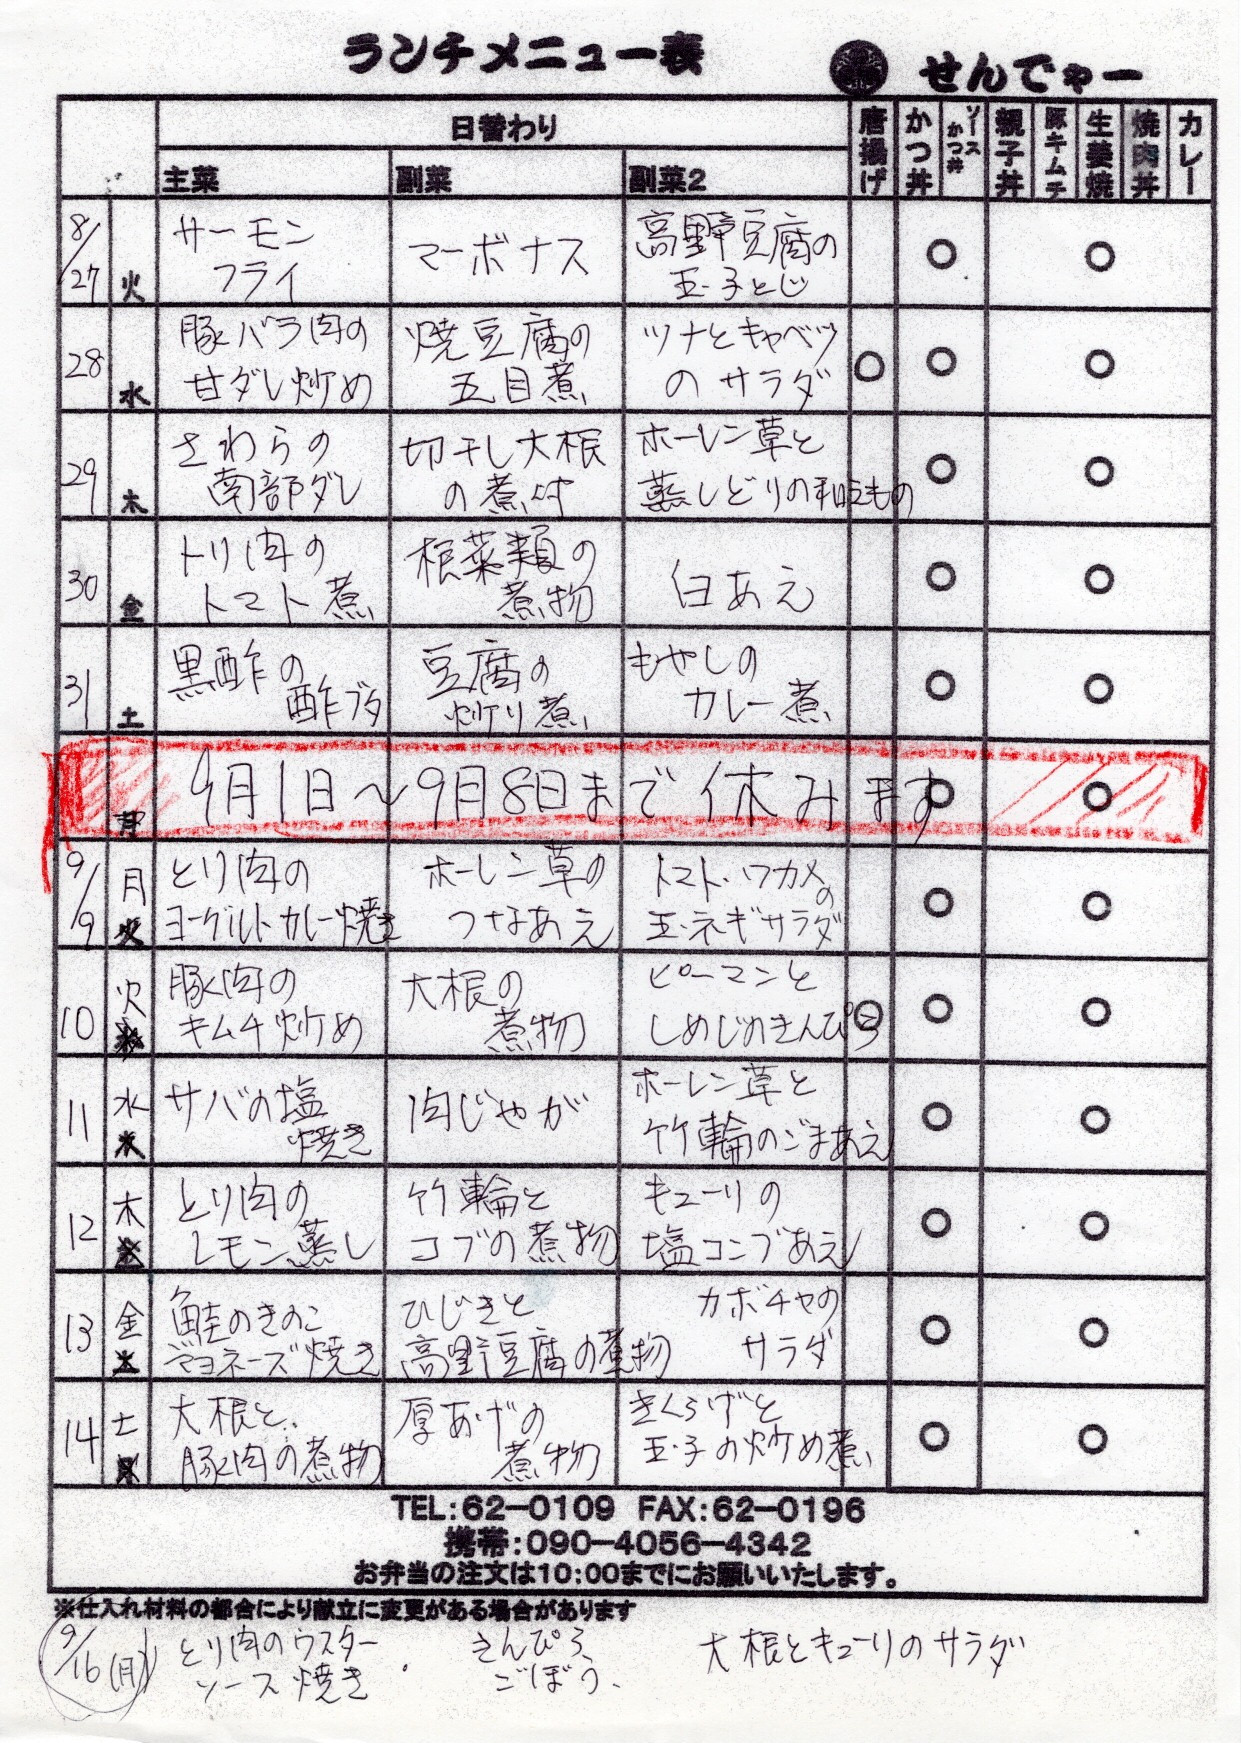 ランチメニュー表
せんでゃー
日替わり
主菜 副菜 副菜2 唐揚げ かつ丼 ソースかつ丼 親子丼 豚キムチ 生姜焼 焼肉丼 カレー
8/27 火 サーモンフライ マーボナス 高野豆腐の玉子とじ ○ ○
28 水 豚バラ肉の甘ダレ炒め 焼豆腐の五目煮 ツナとキャベツのサラダ ○ ○ ○
29 木 さわらの南部ダレ 切干し大根の煮付 ホーレン草と蒸しどりの和えもの ○ ○
30 金 トリ肉のトマト煮 根菜類の煮物 白あえ ○ ○
31 土 黒酢の酢ブタ 豆腐の炒り煮 もやしのカレー煮 ○ ○
9月1日〜9月8日まで休みます ○ ○
9/9 月 とり肉のヨーグルトカレー焼き ホーレン草のつなあえ トマト・ワカメの玉ネギサラダ ○ ○
10 火 豚肉のキムチ炒め 大根の煮物 ピーマンとしめじのきんぴら ○ ○ ○
11 水 サバの塩焼き 肉じゃが ホーレン草と竹輪のごまあえ ○ ○
12 木 とり肉のレモン蒸し 竹輪とコブの煮物 キューリの塩コンブあえ ○ ○
13 金 鮭のきのこマヨネーズ焼き ひじきと高野豆腐の煮物 カボチャのサラダ ○ ○
14 土 大根と、豚肉の煮物 厚あげの煮物 きくらげと玉子の炒め煮 ○ ○
TEL:62-0109 FAX:62-0196
携帯:090-4056-4342
お弁当の注文は10:00までにお願いいたします。
※仕入れ材料の都合により献立に変更がある場合があります
9/16(月) とり肉のウスターソース焼き きんぴらごぼう 大根とキューリのサラダ